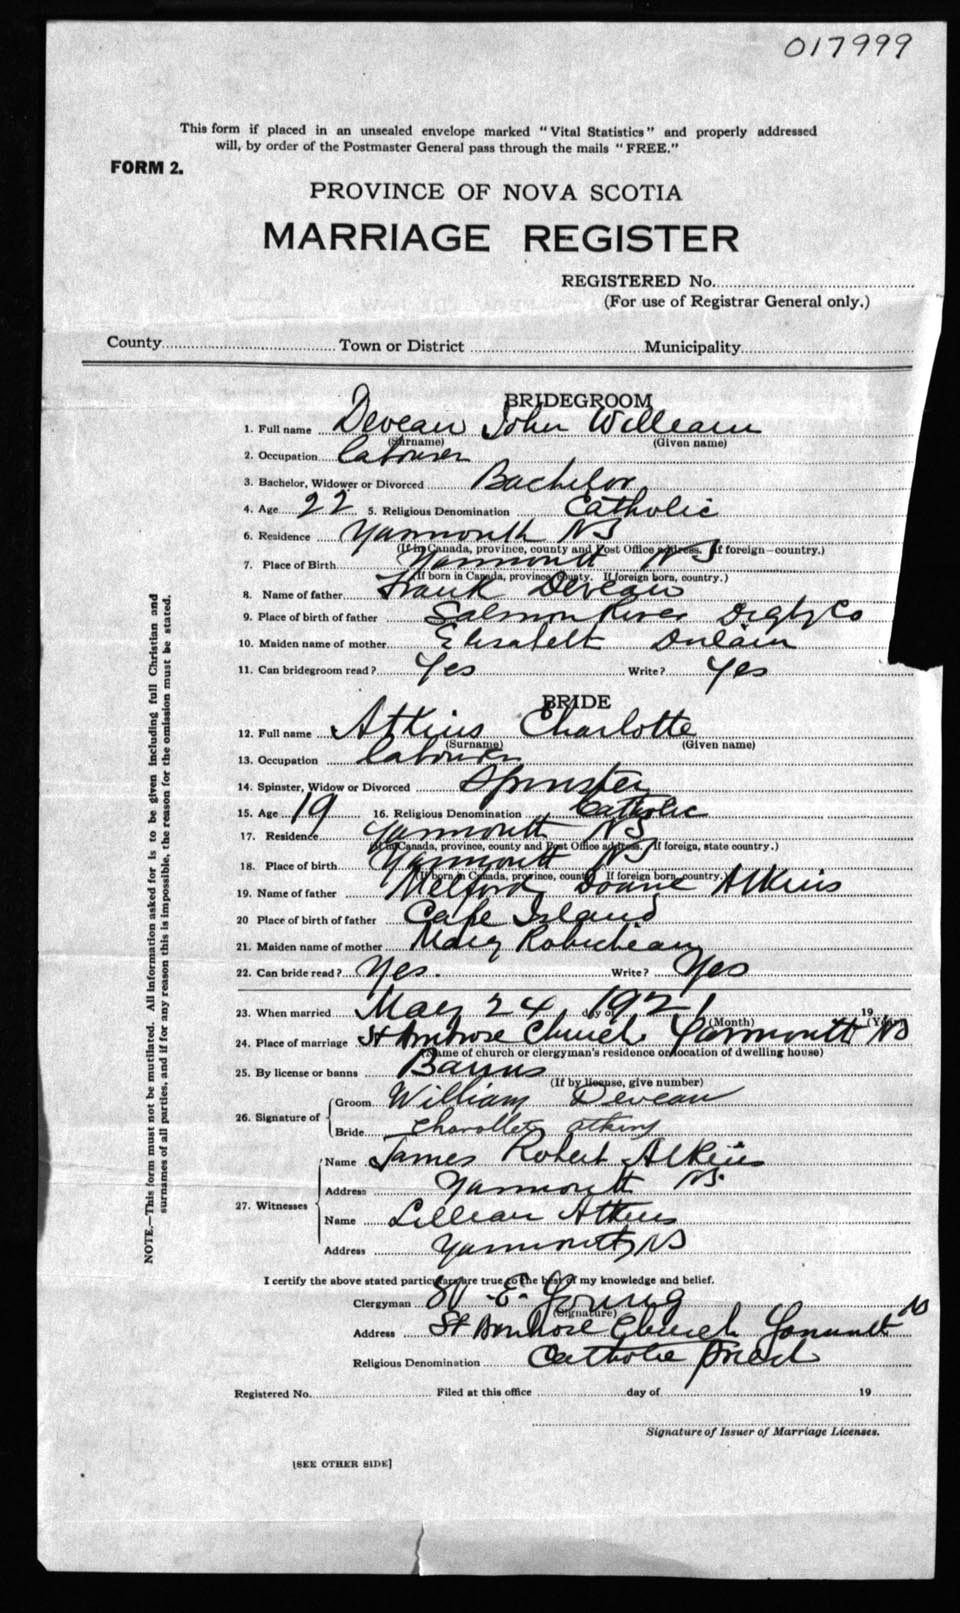 017999
This form if placed in an unsealed envelope marked "Vital Statistics" and properly addressed
will, by order of the Postmaster General pass through the mails "FREE."
FORM 2.
PROVINCE OF NOVA SCOTIA
MARRIAGE REGISTER
REGISTERED No.
(For use of Registrar General only.)
County Town or District Municipality
BRIDEGROOM
1. Full name Deveau John William
(Surname) (Given name)
2. Occupation labourer
3. Bachelor, Widower or Divorced Bachelor
4. Age 22 5. Religious Denomination Catholic
6. Residence Yarmouth NS
(If in Canada, province, county and Post Office address. If foreign—country.)
7. Place of Birth Yarmouth NS
(If born in Canada, province, county. If foreign born, country.)
8. Name of father Frank Deveau
9. Place of birth of father Salmon River Digby Co
10. Maiden name of mother Elisabeth
11. Can bridegroom read? Yes Write? Yes
BRIDE
12. Full name Atkins Charlotte
(Surname) (Given name)
13. Occupation labourer
14. Spinster, Widow or Divorced Spinster
15. Age 19 16. Religious Denomination Catholic
17. Residence Yarmouth NS
(If in Canada, province, county and Post Office address. If foreign, state country.)
18. Place of birth Yarmouth NS
(If born in Canada, province, county. If foreign born, country.)
19. Name of father Melford Doane Atkins
20 Place of birth of father Cape Island
21. Maiden name of mother Mary Robicheau
22. Can bride read? Yes. Write? Yes
23. When married May 24 day of 1921 19
(Month) (Year)
24. Place of marriage St Ambrose Church Yarmouth NS
(Name of church or clergyman's residence or location of dwelling house)
25. By license or banns Banns
(If by license, give number)
26. Signature of
Groom William Deveau
Bride Charollet atkins
27. Witnesses
Name James Robert Atkins
Address Yarmouth NS.
Name Lillian Atkins
Address Yarmouth NS
I certify the above stated particulars are true to the best of my knowledge and belief.
Clergyman W. E. Young
(Signature)
Address St Ambrose Church Yarmouth NS
Religious Denomination Catholic Priest
Registered No. Filed at this office day of 19
Signature of Issuer of Marriage Licenses.
[SEE OTHER SIDE]
NOTE.—This form must not be mutilated. All information asked for is to be given including full Christian and
surnames of all parties, and if for any reason this is impossible, the reason for the omission must be stated.